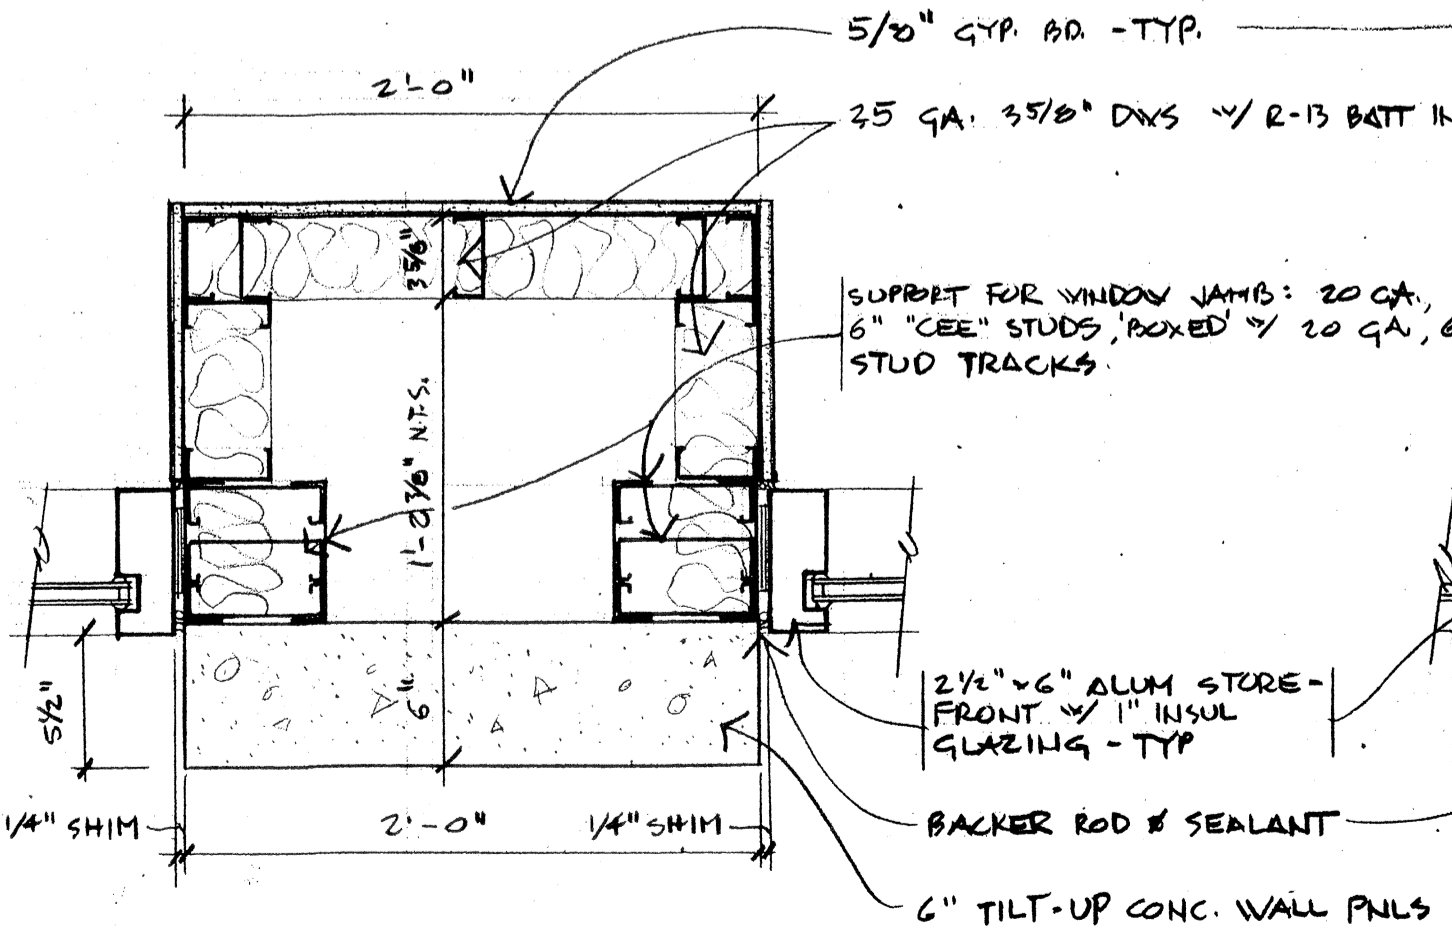 5/8" GYP. BD. - TYP.
2'-0"
25 GA. 3 5/8" DWS W/ R-13 BATT IN
3 5/8"
SUPPORT FOR WINDOW JAMB: 20 GA.,
6" "CEE" STUDS, 'BOXED' W/ 20 GA, 6
STUD TRACKS.
1'-2 3/8" N.T.S.
6"
5 1/2"
2 1/2" x 6" ALUM STORE-
FRONT W/ 1" INSUL
GLAZING - TYP
1/4" SHIM
2'-0"
1/4" SHIM
BACKER ROD & SEALANT
6" TILT-UP CONC. WALL PNLS